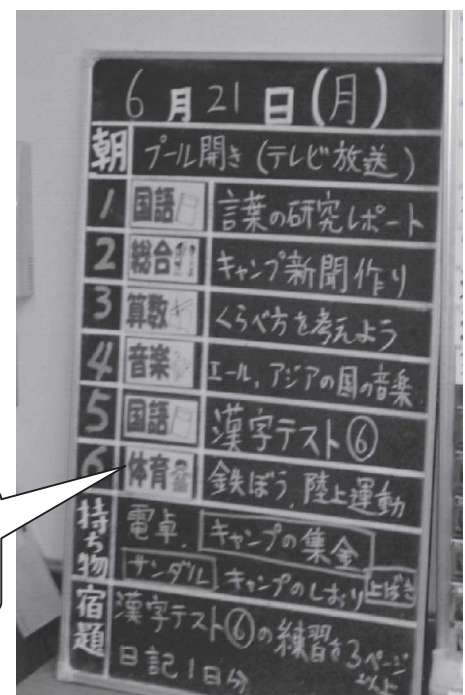 6月21日(月)
朝 プール開き(テレビ放送)
1 国語 言葉の研究レポート
2 総合 キャンプ新聞作り
3 算数 くらべ方を考えよう
4 音楽 エール,アジアの国の音楽
5 国語 漢字テスト⑥
6 体育 鉄ぼう,陸上運動
持ち物 電卓,キャンプの集金
サンダル,キャンプのしおり 上ばき
宿題 漢字テスト⑥の練習を3ページ
日記1日分